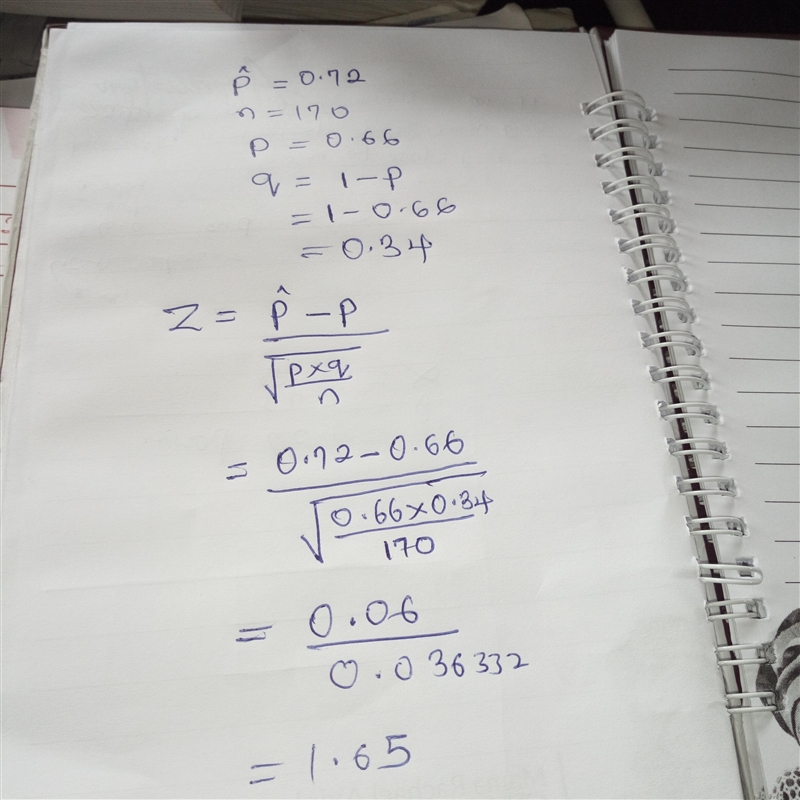 p̂ = 0.72
n = 170
p = 0.66
q = 1 - p
= 1 - 0.66
= 0.34
Z = (p̂ - p) / √(p×q / n)
= (0.72 - 0.66) / √(0.66×0.34 / 170)
= 0.06 / 0.036332
= 1.65